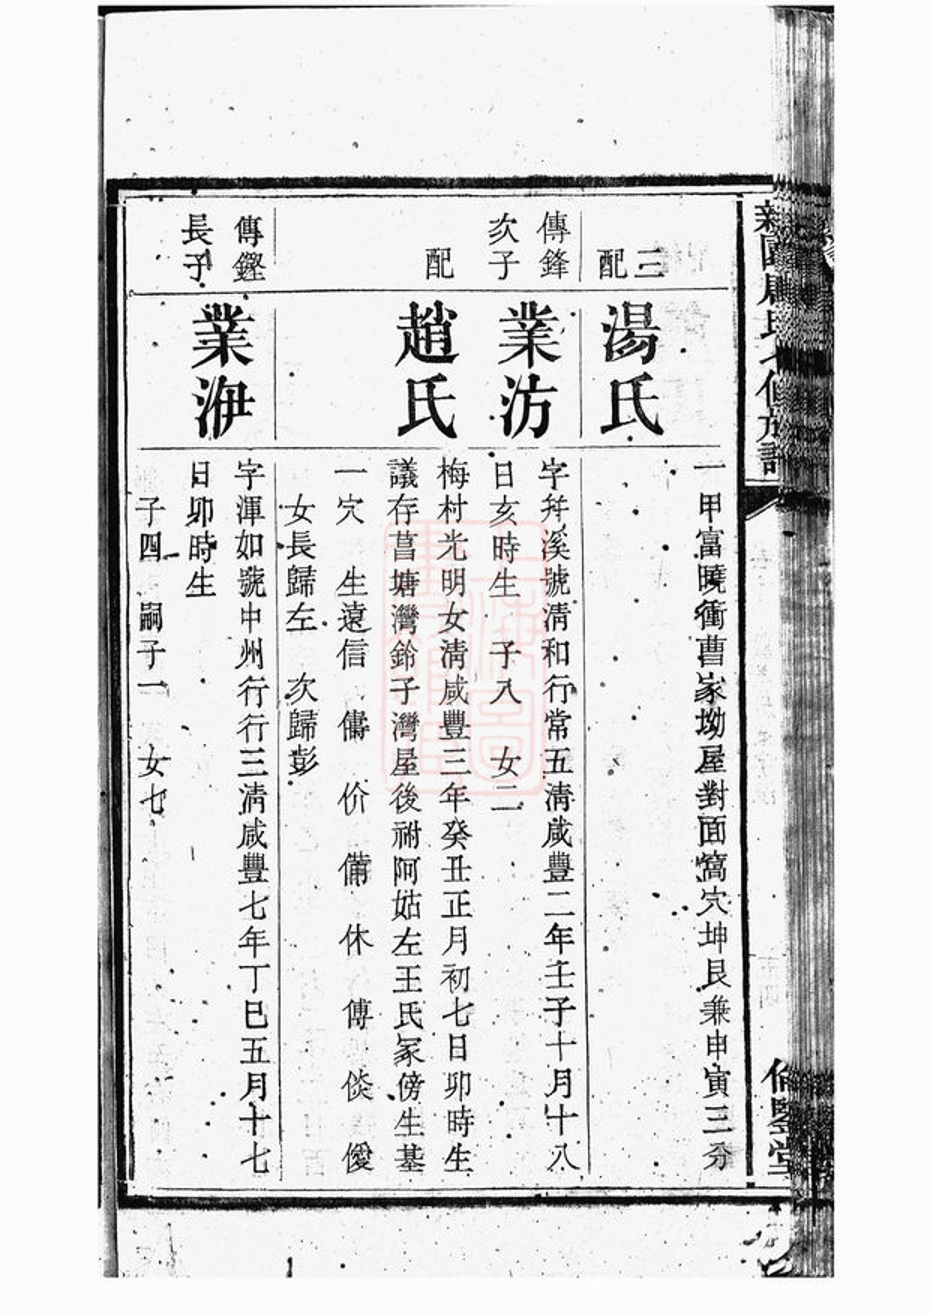 一甲富曉衝曹家坳屋對面窩穴坤艮兼申寅三分
三配
湯氏
傳鋒次子
業汸
字蛘溪號清和行常五清咸豐二年壬子十月十八
日亥時生 子八 女二
配
趙氏
梅村光明女清咸豐三年癸丑正月初七日卯時生
議存菖塘灣鈴子灣屋後祔阿姑左王氏冢傍生基
一穴 生遠信 傋 价 備 休 傳 倓 優
女長歸左 次歸彭
傳鏗長子
業洢
字渾如號申州行行三清咸豐七年丁巳五月十七
日卯時生
子四 嗣子一 女七
倫鑒堂